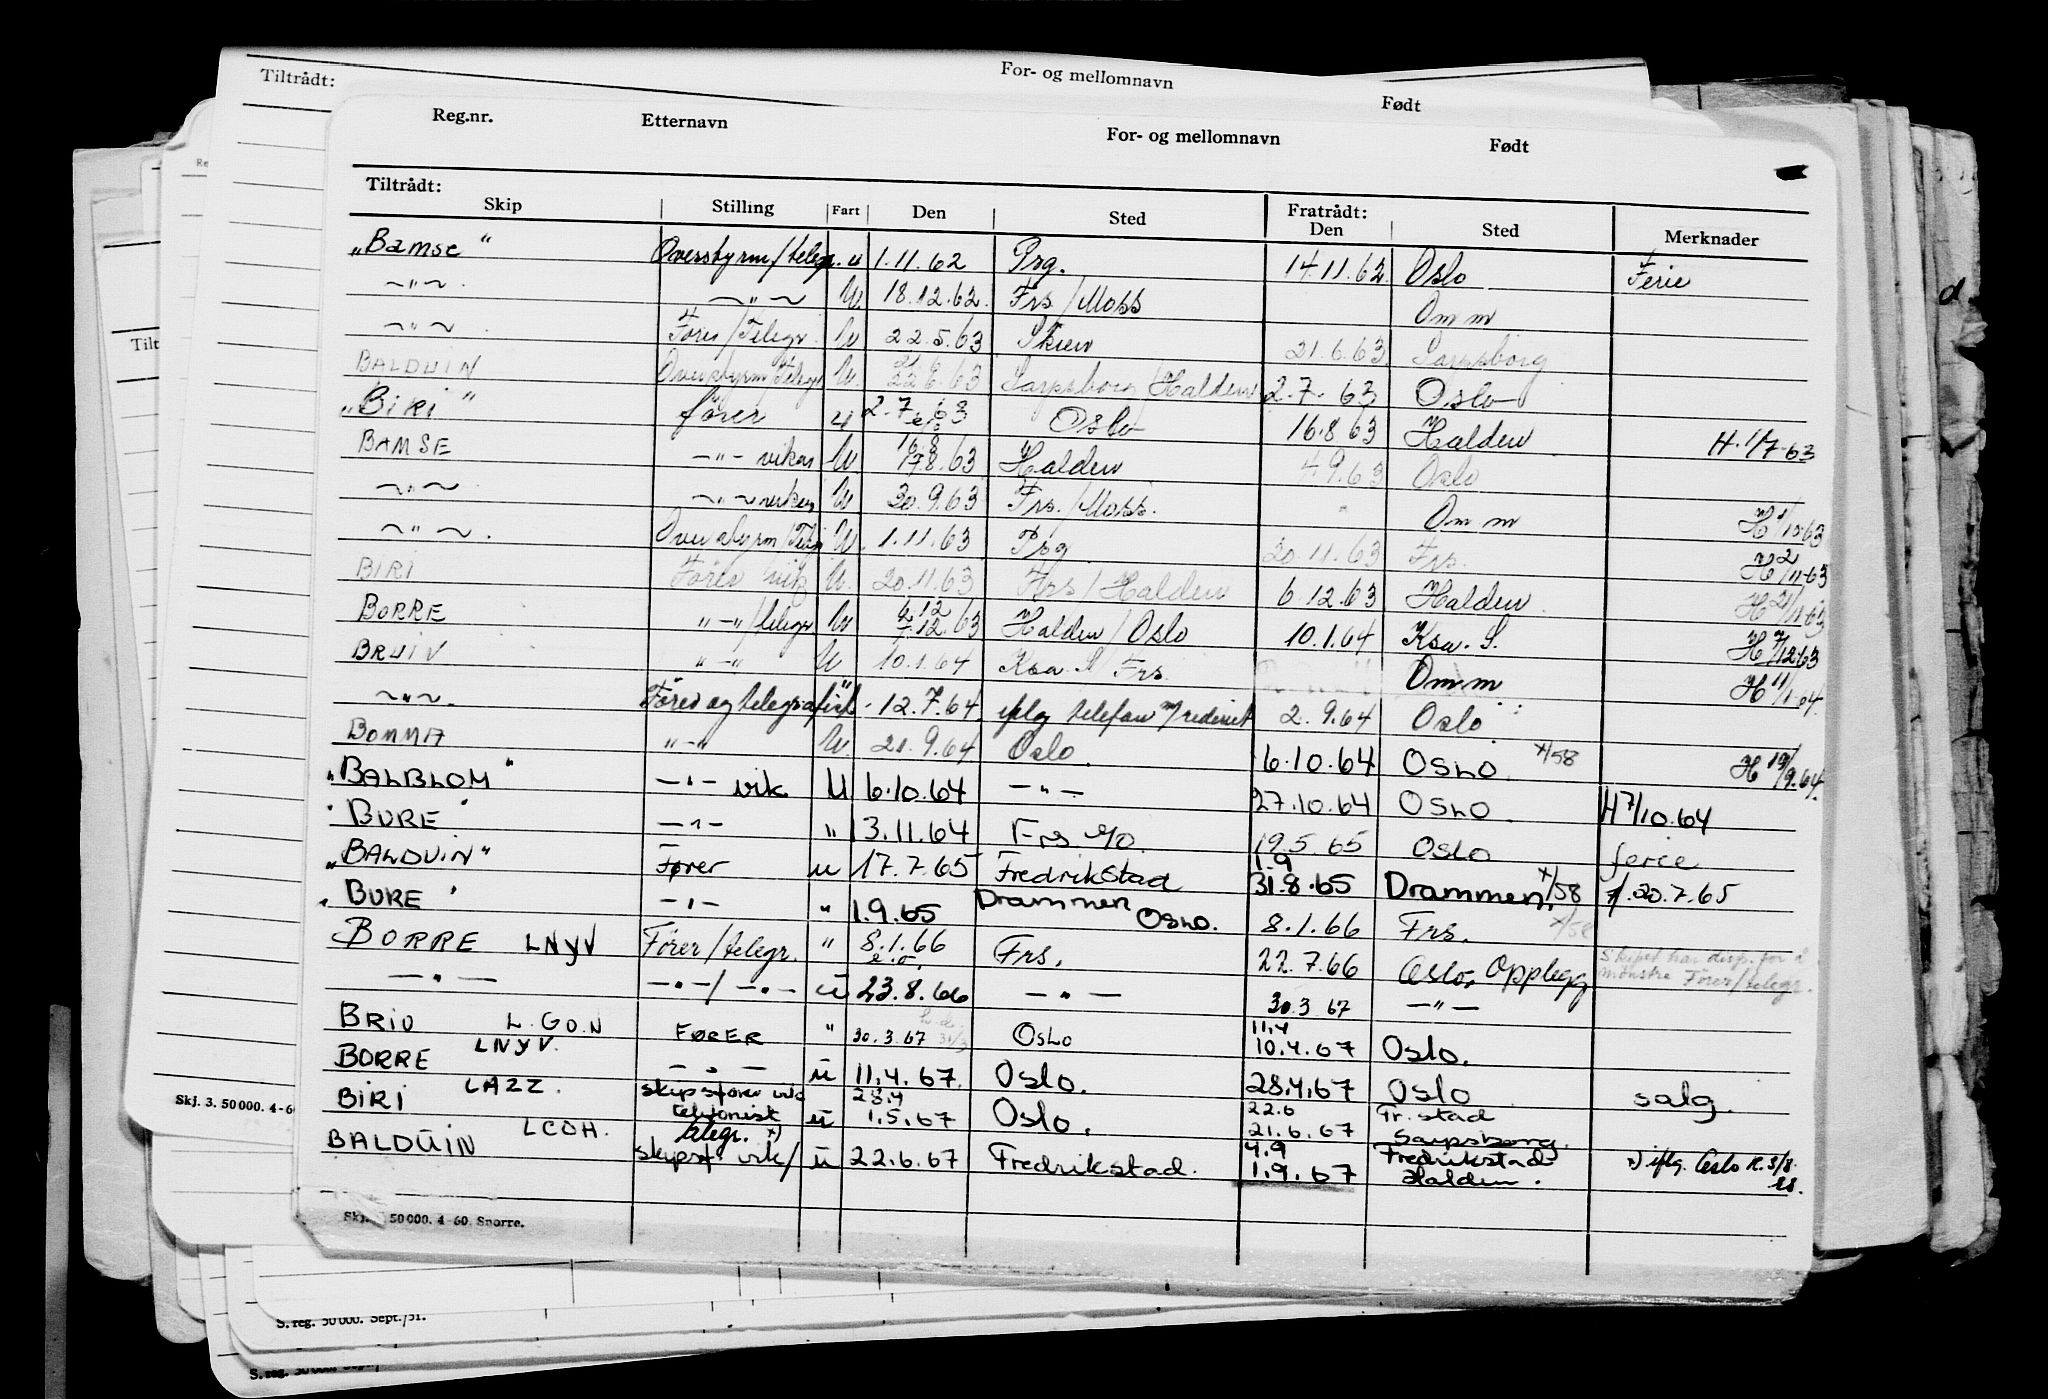 Tiltrådt: For- og mellomnavn Født
Reg.nr. Etternavn For- og mellomnavn Født
Tiltrådt: Fratrådt:
Skip Stilling Fart Den Sted Den Sted Merknader
„Bamse“ Overstyrm/telegr. u 1.11.62 Prg. 14.11.62 Oslo Ferie
—„— —„— U. 18.12.62. Frs./Moss Omm
—„— Förer/Telegr. U 22.5.63 Skien 21.6.63 Sarpsborg
BALDUIN Overstyrm Telegr U. 22.6.63 Sarpsborg/Halden 2.7.63 Oslo
„Biri“ förer u 2.7.63 Oslo 16.8.63 Halden H. 1/7-63
BAMSE —"— vikar U. 16.8 17.8.63 Halden 4.9.63 Oslo
—„— —„— U 30.9.63 Frs./Moss. Omm H 1/10 63
—„—. Overstyrm/Telegr U. 1.11.63 Prg 20.11.63 Frs. H 2/11-63
BIRI Förer vik U. 20.11.63 Frs/Halden 6.12.63 Halden. H 21/11.63
BORRE "—"/telegr U 6.12 7.12.63 Halden/Oslo 10.1.64 Ksa. S. H 7/12.63
BRUIN "—" U 10.1.64 Ksa. S Frs. Omm H 11/1-64.
—„—. Förer og telegrafist 12.7.64. iflg telefon m/rederiet 2.9.64 Oslo.
BOMMA "—" U 21.9.64 Oslo. 6.10.64 OSLO. x/58 H 19/9.64.
„BALBLOM“ —"— vik U 6.10.64 —"— 27.10.64 OSLO. H 7/10.64
"BURE" —"— " 13.11.64 Frs 19.5.65 Oslo ferie
„BALDUIN“ Fører u 17.7.65 Fredrikstad 1.9 31.8.65 Drammen. x/58 20.7.65
"BURE" —"— " 1.9.65 Drammen Oslo. 8.1.66 Frs. x/58
BORRE LNYV Förer/telegr. " 8.1.66 e.o. Frs. 22.7.66 Oslo, Opplegg Skipet har disp. for å mønstre Förer/telegr.
—"— —"—/—"— u 23.8.66 —"— 30.3.67 —"—
BRIO L.GO.N FØRER " 30.3.67 31/3 Oslo 11.4 10.4.67 Oslo.
BORRE LNYV. —"— u 11.4.67. Oslo. 28.4.67 Oslo salg.
BIRI LAZZ. skipsfører vik telefonist u 28.4 1.5.67 Oslo. 22.6 21.6.67 Fr.stad Sarpsborg.
BALDUIN LCDH. telegr. x) skipsf. vik/ u 22.6.67 Fredrikstad. 4.9 1.9.67 Fredrikstad Halden. x) iflg. Oslo R. 3/8.
Skj. 3. 50000. 4-60
Skj. 50000. 4-60. Snorre.
S. reg. 50000. Sept./51.